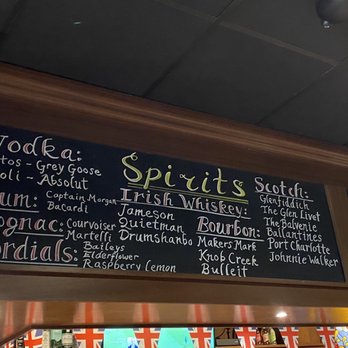 Spirits
Vodka:
tos - Grey Goose
oli - Absolut
um: Captain Morgan
Bacardi
ognac: Courvoiser
Martelli
ordials: Baileys
Elderflower
Raspberry Lemon
Irish Whiskey:
Jameson
Quietman
Drumshanbo
Bourbon:
Makers Mark
Knob Creek
Bulleit
Scotch:
Glenfiddich
The Glen Livet
The Balvenie
Ballantines
Port Charlotte
Johnnie Walker